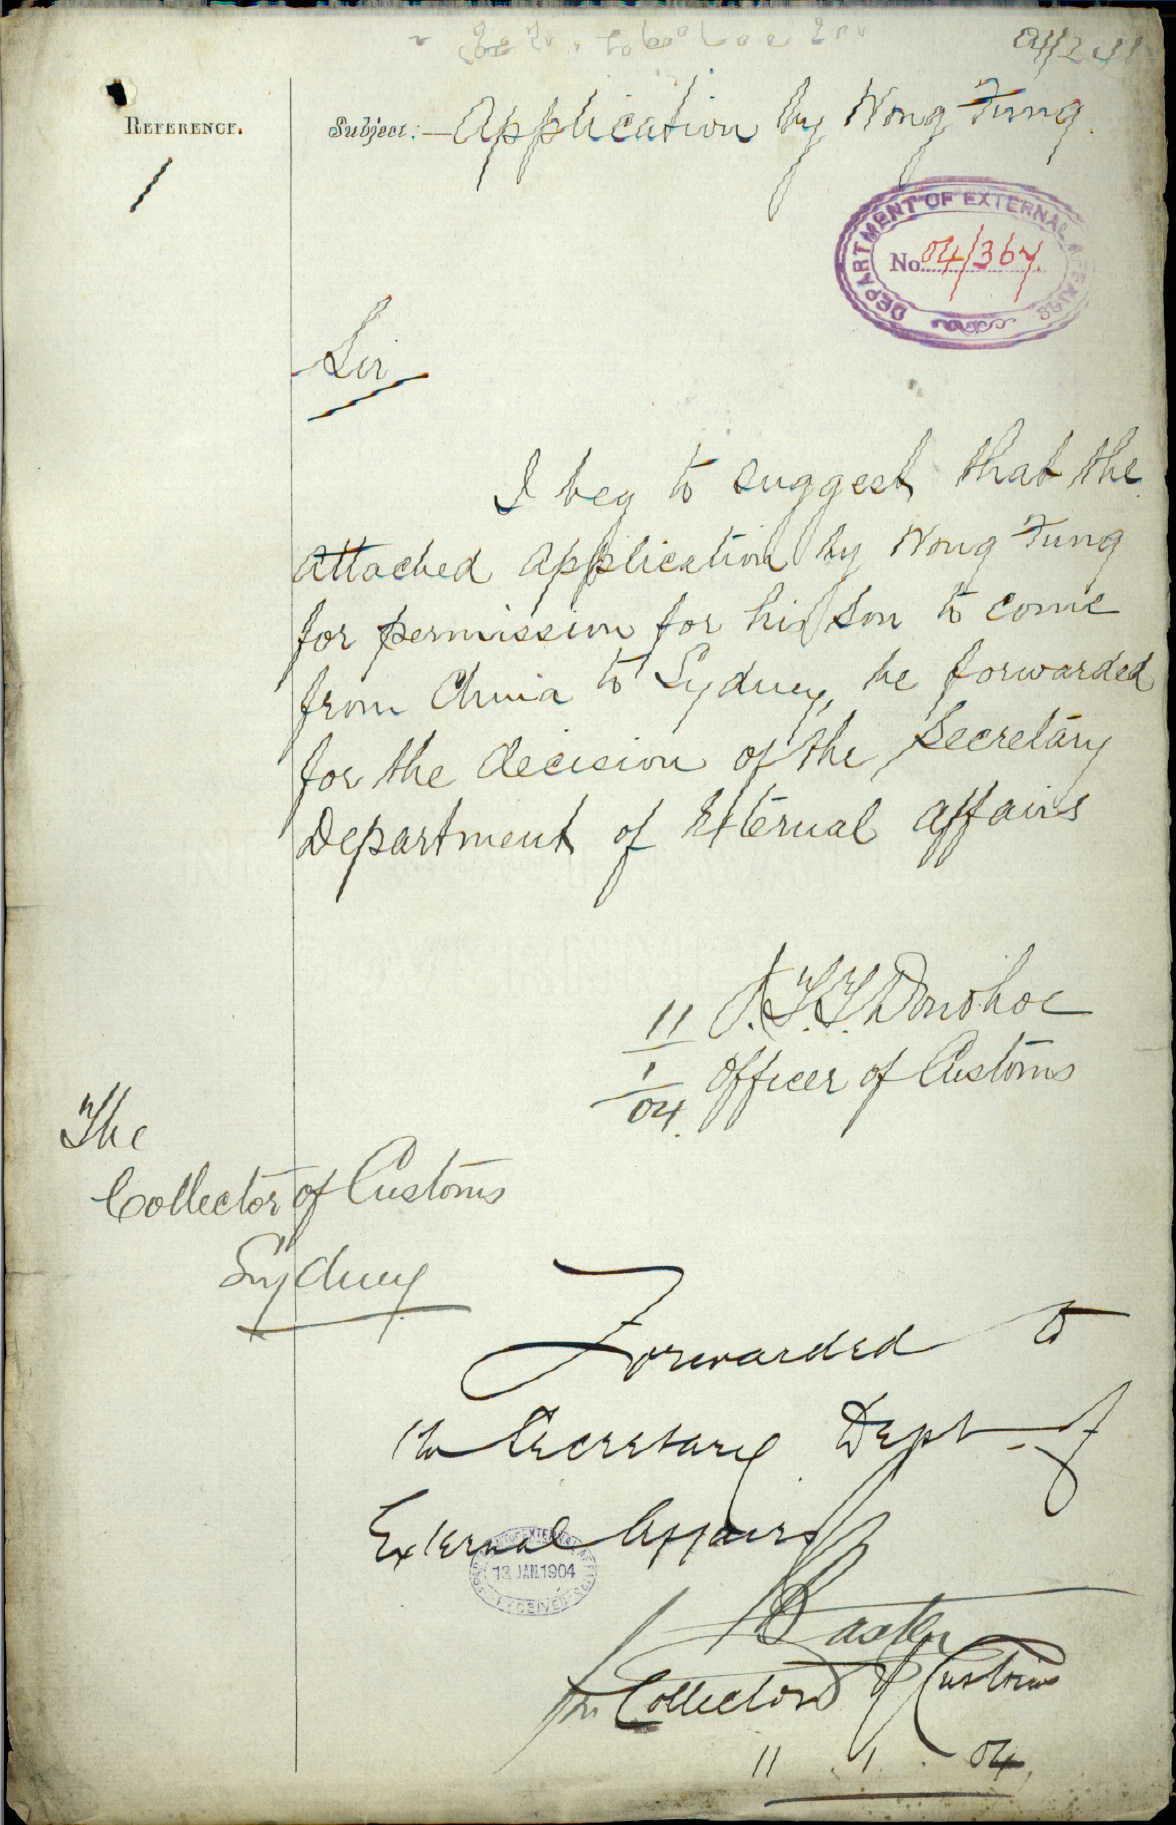 Reference.
Subject:— Application by Wong Fung.
DEPARTMENT OF EXTERNAL AFFAIRS
No. 04/367
Sir
I beg to suggest that the
attached application by Wong Fung
for permission for his son to come
from China to Sydney, be forwarded
for the decision of the Secretary
Department of External Affairs
Donohoe
11
1
04.
Officer of Customs
The
Collector of Customs
Sydney
Forwarded to
the Secretary Dept. of
External Affairs
13 JAN 1904
RECEIVED
Baxter
for Collector of Customs
11.1.04.